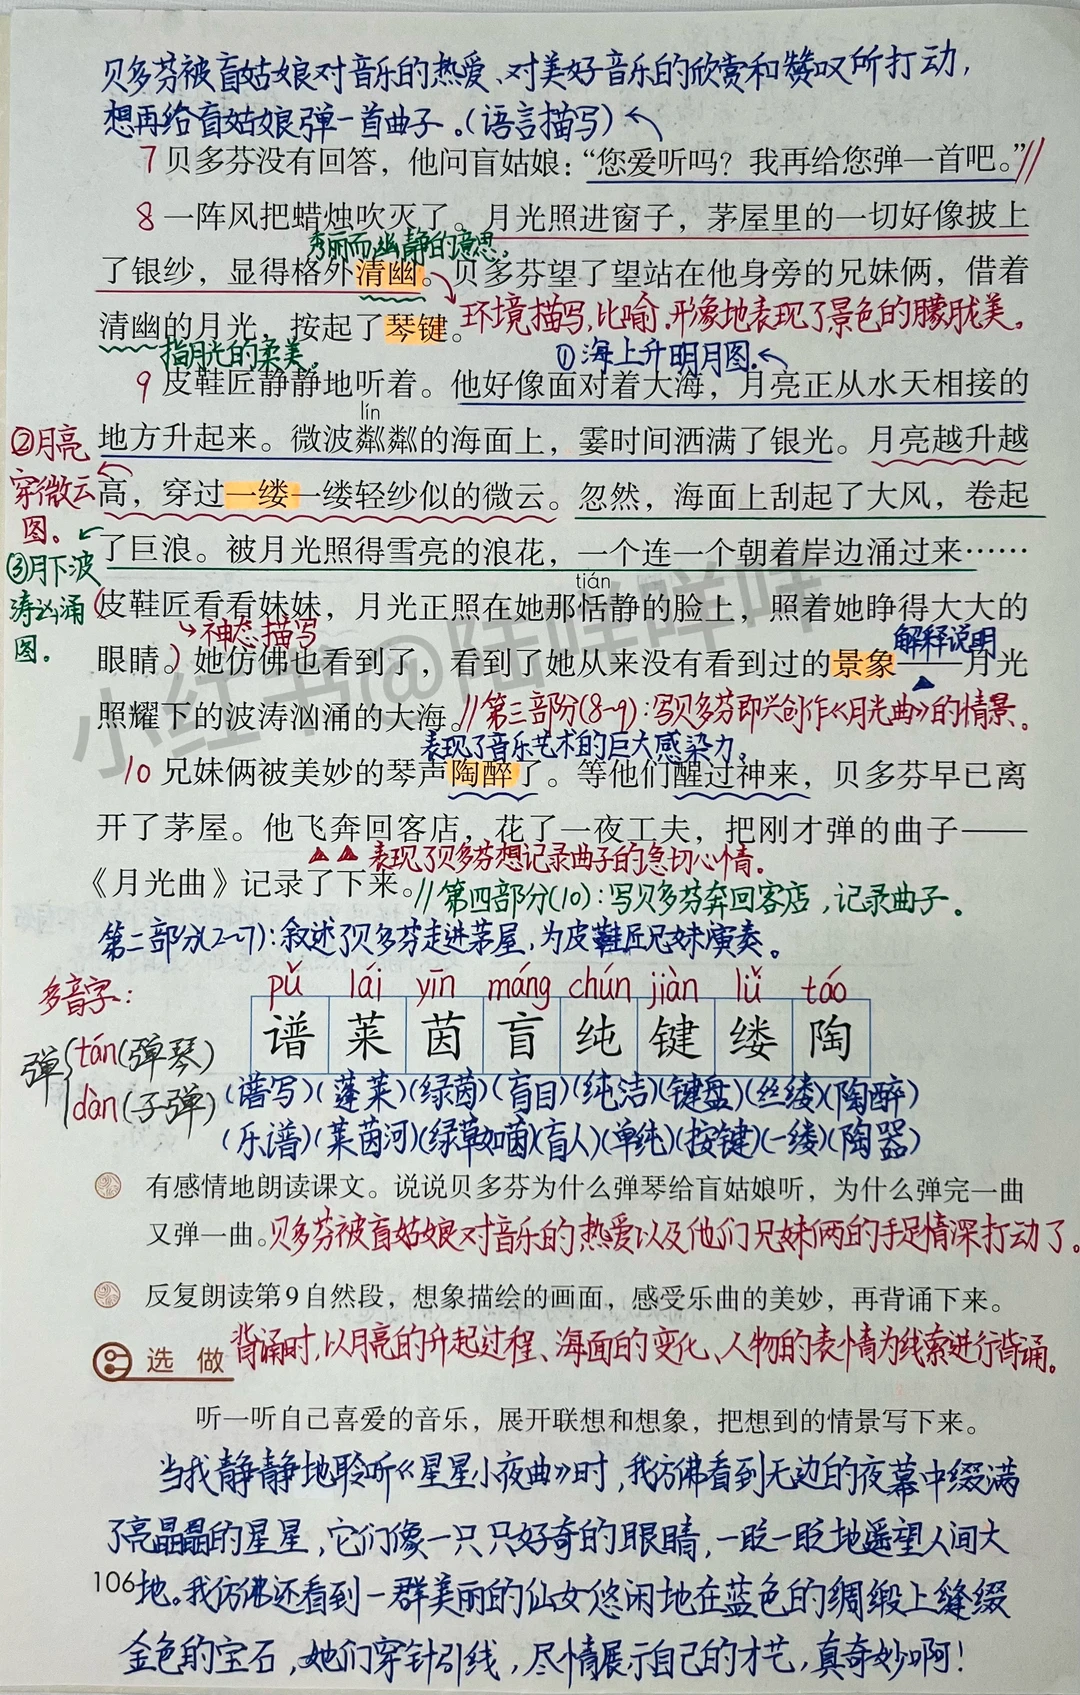 贝多芬被盲姑娘对音乐的热爱、对美好音乐的欣赏和赞叹所打动，
想再给盲姑娘弹一首曲子。（语言描写）
7 贝多芬没有回答，他问盲姑娘：“您爱听吗？我再给您弹一首吧。”//
8 一阵风把蜡烛吹灭了。月光照进窗子，茅屋里的一切好像披上
秀丽而幽静的意思。
了银纱，显得格外清幽。贝多芬望了望站在他身旁的兄妹俩，借着
环境描写，比喻。形象地表现了景色的朦胧美。
清幽的月光，按起了琴键。
指月光的柔美。
①海上升明月图。
9 皮鞋匠静静地听着。他好像面对着大海，月亮正从水天相接的
lín
地方升起来。微波粼粼的海面上，霎时间洒满了银光。月亮越升越
②月亮
穿微云
图。
高，穿过一缕一缕轻纱似的微云。忽然，海面上刮起了大风，卷起
了巨浪。被月光照得雪亮的浪花，一个连一个朝着岸边涌过来……
③月下波
涛汹涌
图。
tián
（皮鞋匠看看妹妹，月光正照在她那恬静的脸上，照着她睁得大大的
神态描写
解释说明
眼睛。）她仿佛也看到了，看到了她从来没有看到过的景象——月光
照耀下的波涛汹涌的大海。//第三部分(8~9)：写贝多芬即兴创作《月光曲》的情景。
表现了音乐艺术的巨大感染力。
10 兄妹俩被美妙的琴声陶醉了。等他们醒过神来，贝多芬早已离
开了茅屋。他飞奔回客店，花了一夜工夫，把刚才弹的曲子——
表现了贝多芬想记录曲子的急切心情。
《月光曲》记录了下来。//第四部分(10)：写贝多芬奔回客店，记录曲子。
第二部分(2~7)：叙述了贝多芬走进茅屋，为皮鞋匠兄妹演奏。
多音字：
弹 tán(弹琴)
dàn(子弹)
pǔ lái yīn máng chún jiàn lǚ táo
谱 莱 茵 盲 纯 键 缕 陶
(谱写)(蓬莱)(绿茵)(盲目)(纯洁)(键盘)(丝缕)(陶醉)
(乐谱)(莱茵河)(绿草如茵)(盲人)(单纯)(按键)(一缕)(陶器)
有感情地朗读课文。说说贝多芬为什么弹琴给盲姑娘听，为什么弹完一曲
又弹一曲。贝多芬被盲姑娘对音乐的热爱以及他们兄妹俩的手足情深打动了。
反复朗读第9自然段，想象描绘的画面，感受乐曲的美妙，再背诵下来。
背诵时，以月亮的升起过程、海面的变化、人物的表情为线索进行背诵。
选做
听一听自己喜爱的音乐，展开联想和想象，把想到的情景写下来。
当我静静地聆听《星星小夜曲》时，我仿佛看到无边的夜幕中缀满
了亮晶晶的星星，它们像一只只好奇的眼睛，一眨一眨地遥望人间大
地。我仿佛还看到一群美丽的仙女悠闲地在蓝色的绸缎上缝缀
金色的宝石，她们穿针引线，尽情展示自己的才艺，真奇妙啊！
106
小红书@陆咩咩咩